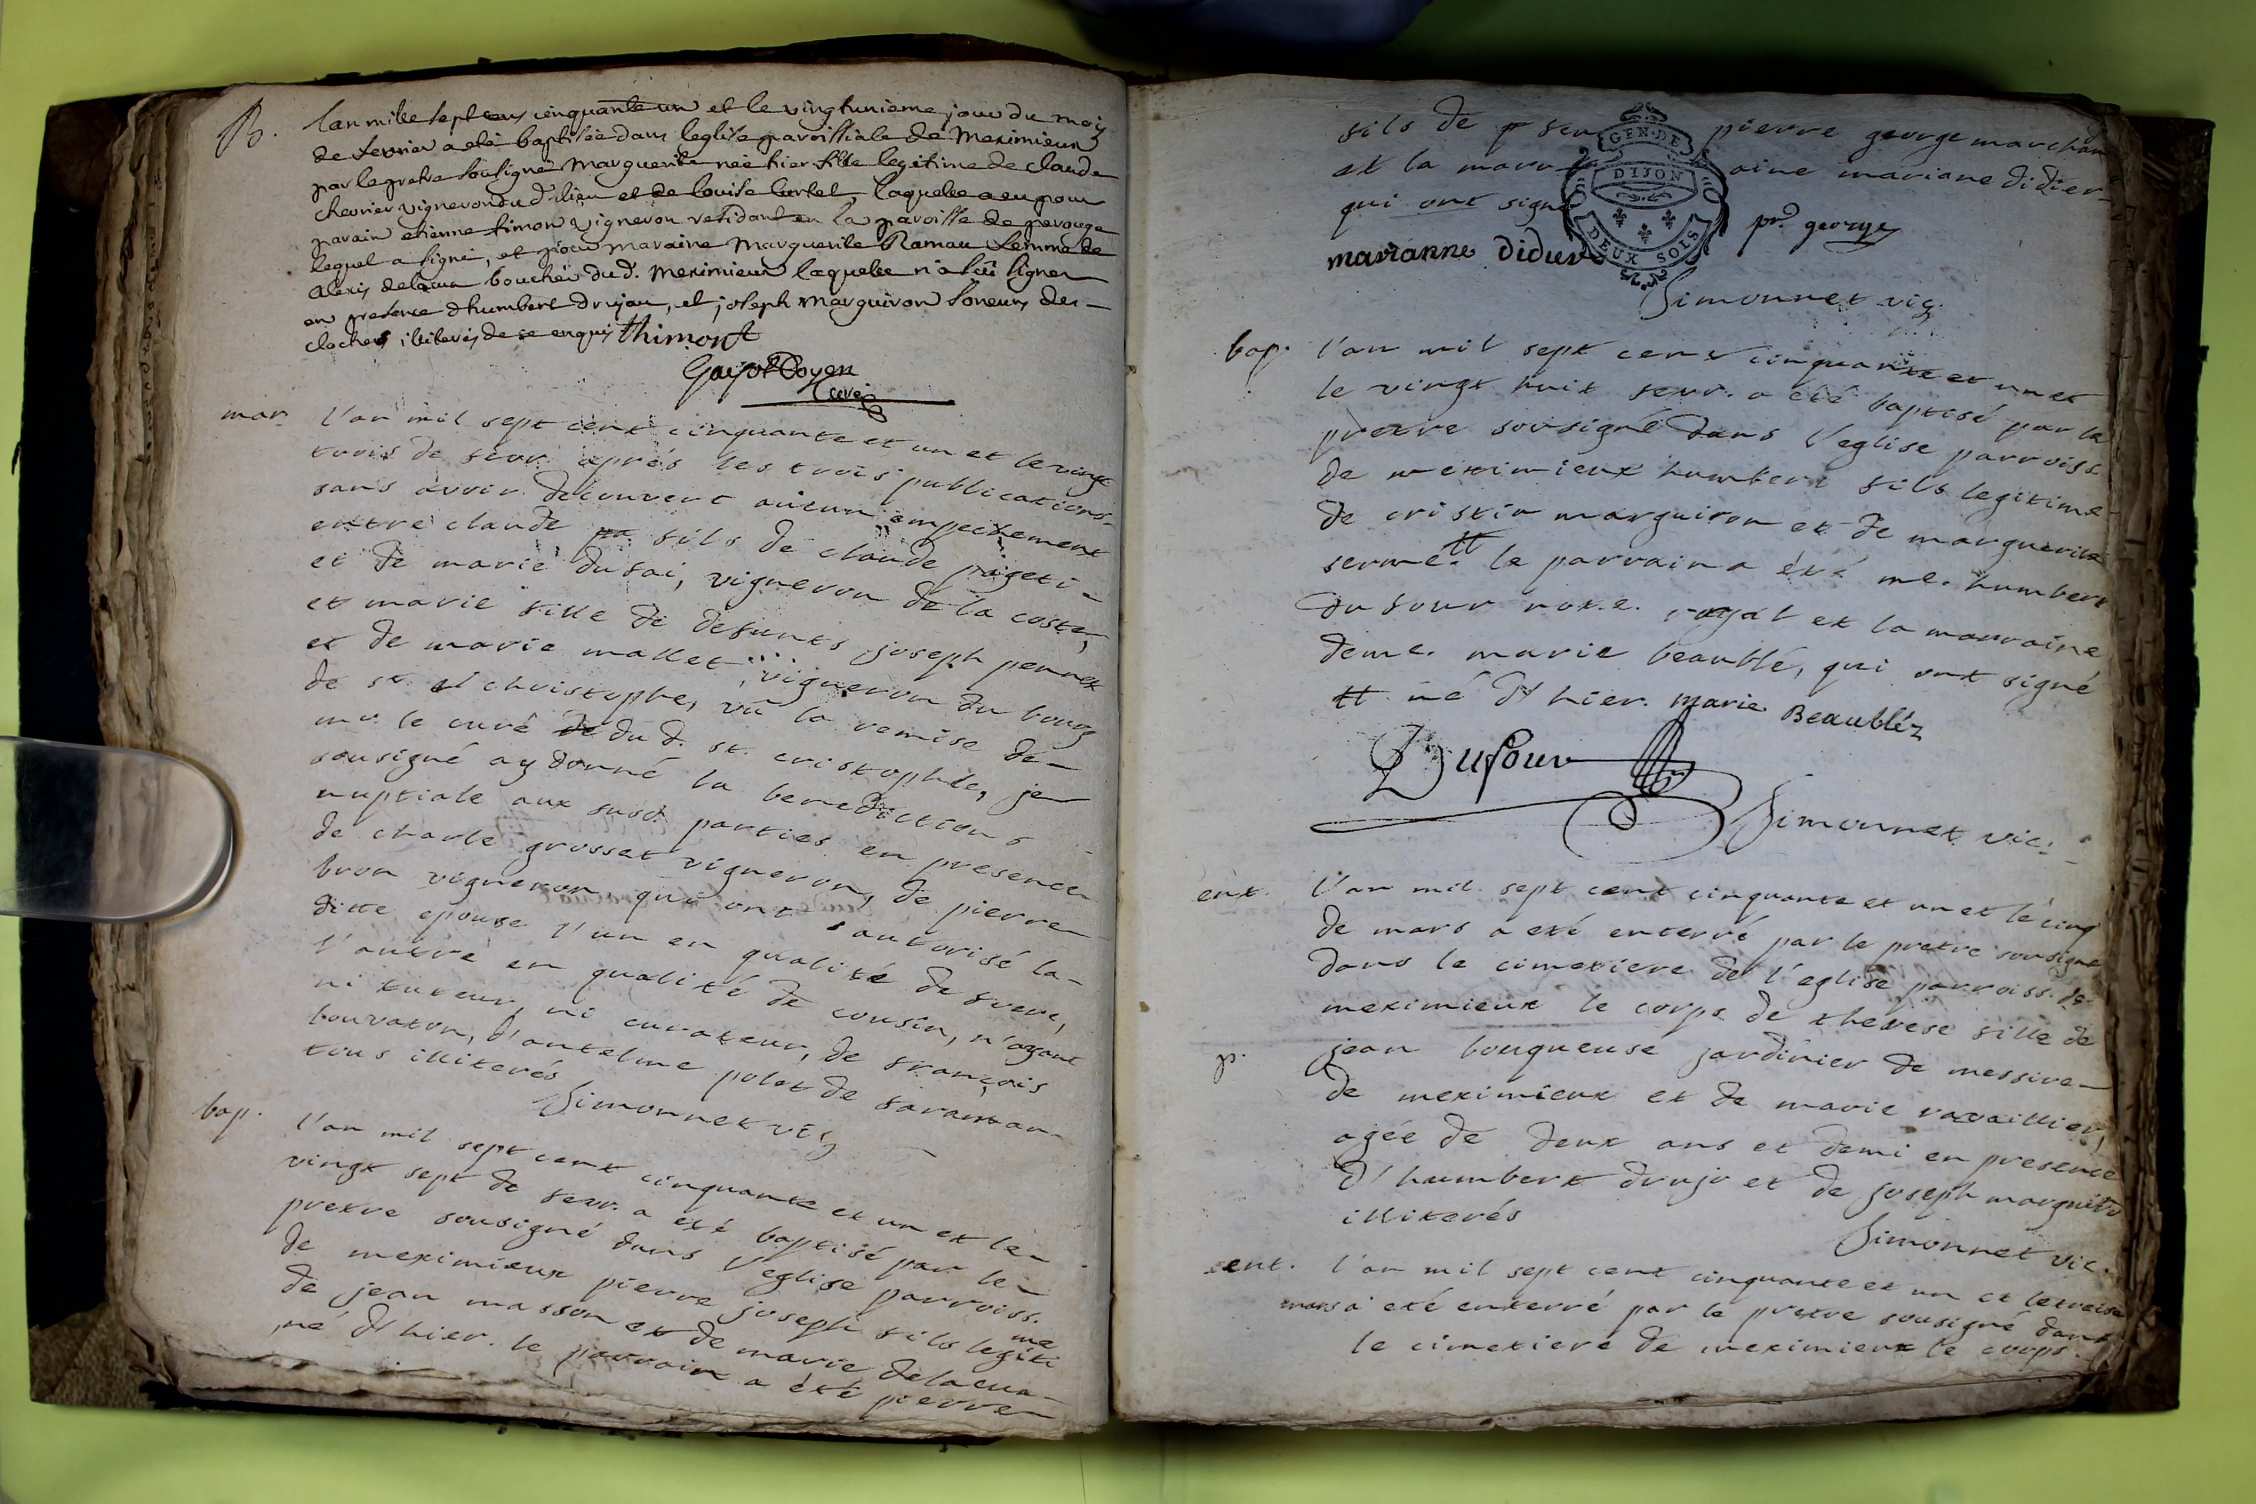 B. Lan mille sept cens cinquante un et le vingtunieme jour du mois
de fevrier a eté baptisée dans leglise parroissiale de Meximieux
par le pretre sousigné Marguerite née hier fille legitime de claude
chevrier vigneron du d. lieu et de louise curtet, laquelle a eu pour
parain etienne timon vigneron residant en la paroisse de perouge
lequel a signé, et pour maraine Marguerite Ramau femme de
alexis delacua boucher du d. Meximieux laquelle n'a sçu signer
en presence d'humbert drujau, et joseph Marguiron soneurs des
cloches illiterés de ce enquis thimont
Guyot Doyen
curé
mar. l'an mil sept cent cinquante et un et le vingt
trois de fevr. aprés les trois publications
sans avoir decouvert aucun empechement
entre claude fils de claude pageti
et de marie dufai, vigneron de la coste,
et marie fille de defunts joseph pennet
et de marie mallet vigneron du bourg
de st. christophe, vû la remise de
mr. le curé du d. st. cristophle, je
sousigné ay donné la benediction
nuptiale aux susd. parties en presence
de charle grosset vigneron, de pierre
bron vigneron qui ont autorisé la
ditte epouse l'un en qualité de frere,
l'autre en qualité de cousin, n'ayant
ni tuteur, ni curateur, de françois
bouvaton, d'antelme polet de
tous illiterés
Simonnet vic.
bap. l'an mil sept cent cinquante et un et le
vingt sept de fevr. a eté baptisé par le
pretre sousigné dans l'eglise parroiss.
de meximieux pierre joseph fils legiti
me
de jean masson et de marie delacua
né d'hier. le parrain a été pierre
fils de pierre george marchan
et la marraine mariane didier
qui ont signé
GEN. DE
DIJON
DEUX SOLS
pr. george
marianne didier
Simonnet vic.
bap. l'an mil sept cent cinquante et un et
le vingt huit fevr. a été baptisé par le
pretre sousigné dans l'eglise parroiss.
de meximieux humbert fils legitime
de cristin marguiron et de marguerite
fermé. tt le parrain a été me. humbert
dufour not.e. royal et la marraine
deme. marie beaublé, qui ont signé
tt né d'hier. marie Beaubléz
Dufour
Simonnet vic.
ent. l'an mil sept cent cinquante et un et le cinq
de mars a eté enterré par le pretre sousigné
dans le cimetiere de l'eglise parroiss. de
meximieux le corps de therese fille de
p. jean bouqueusé jardinier de messire
de meximieux et de marie ravaillier,
agée de deux ans et demi en presence
d'humbert drujo et de joseph marguiro
illiterés
Simonnet vic.
ent. l'an mil sept cent cinquante et un et le treise
mars a eté enterré par le pretre sousigné dans
le cimetiere de meximieux le corps